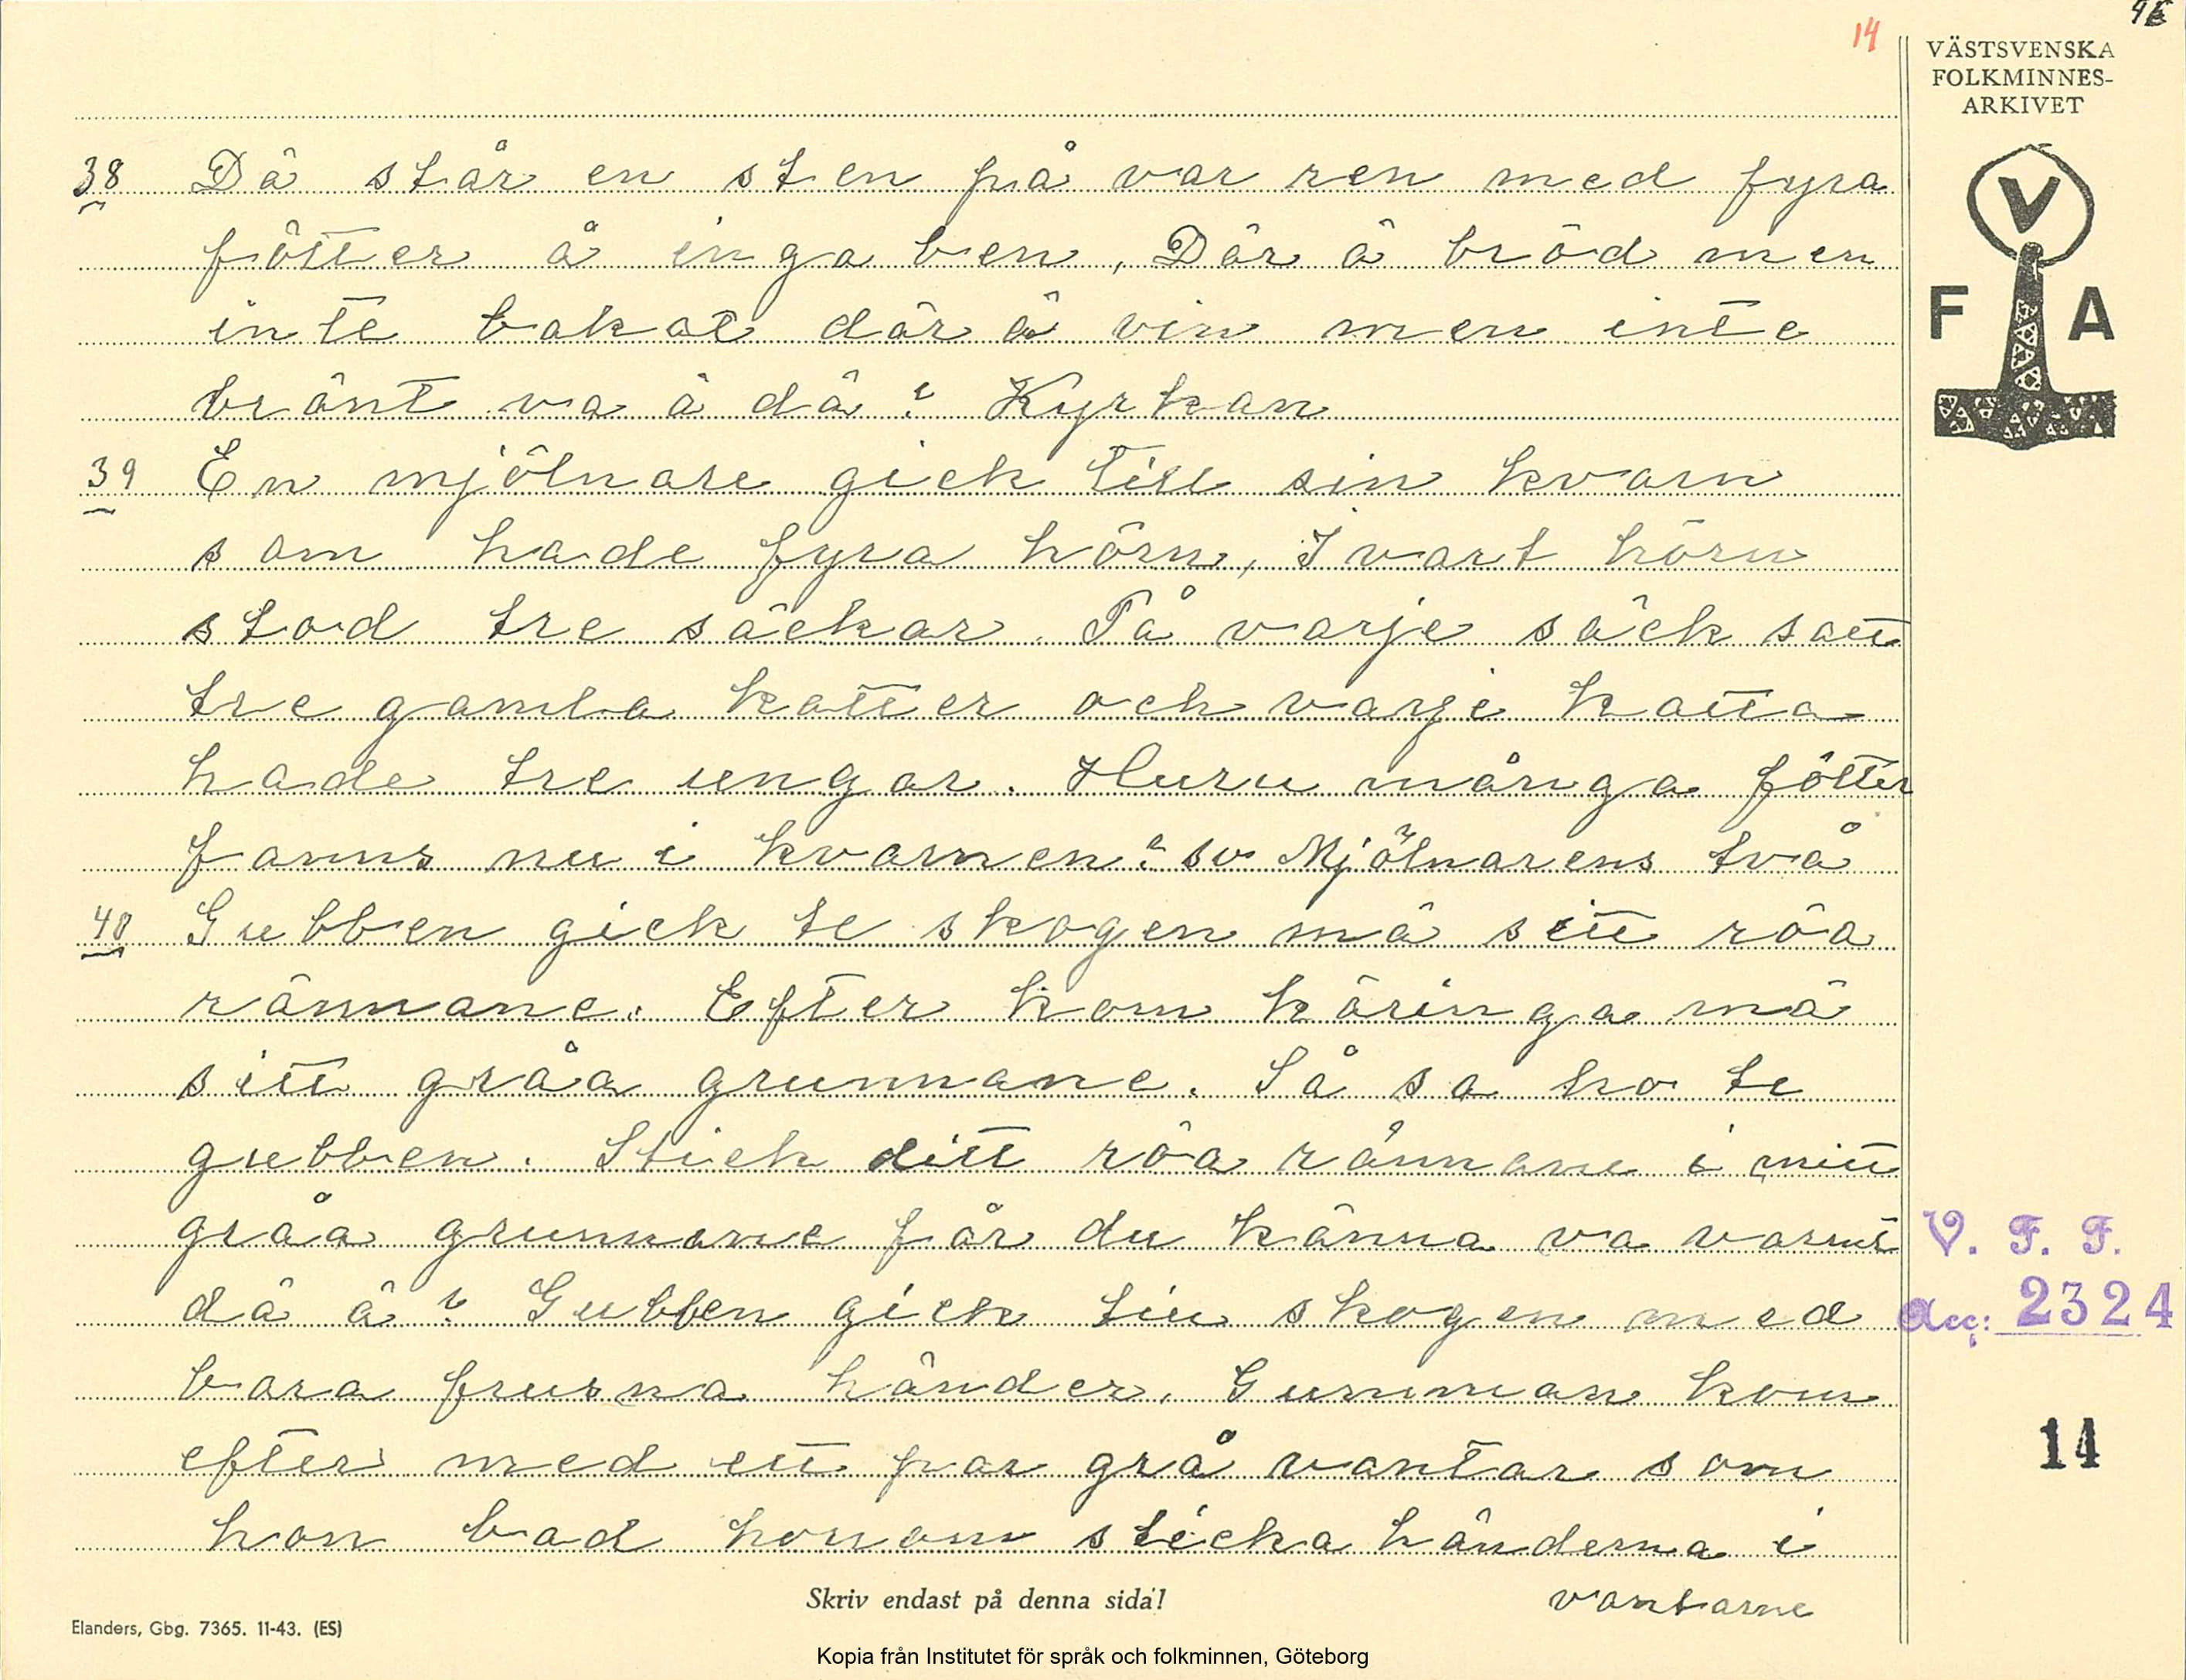 14
4E
VÄSTSVENSKA
FOLKMINNES-
ARKIVET
V
F A
38 Dä står en sten på var ren med fyra
fötter å inga ben, Där ä bröd men
inte bakat där ä vin men inte
bränt va ä dä? Kyrkan
39 En mjölnare gick till sin kvarn
som hade fyra hörn, I vart hörn
stod tre säckar. På varje säck satt
tre gamla katter och varje katta
hade tre ungar. Huru många fötter
fanns nu i kvarnen? sv Mjölnarens två
40 Gubben gick te skogen mä sitt röa
rännane. Efter kom käringa mä
sitt gråa grunnane. Så sa ho te
gubben. Stick ditt röa rännane i mitt
gråa grunnane får du känna va varmt
dä ä? Gubben gick till skogen med
bara frusna händer. Gumman kom
efter med ett par grå vantar som
hon bad honom sticka händerna i
vantarne
V. F. F.
Acc: 2324
14
Skriv endast på denna sida!
Elanders, Gbg. 7365. 11-43. (ES)
Kopia från Institutet för språk och folkminnen, Göteborg